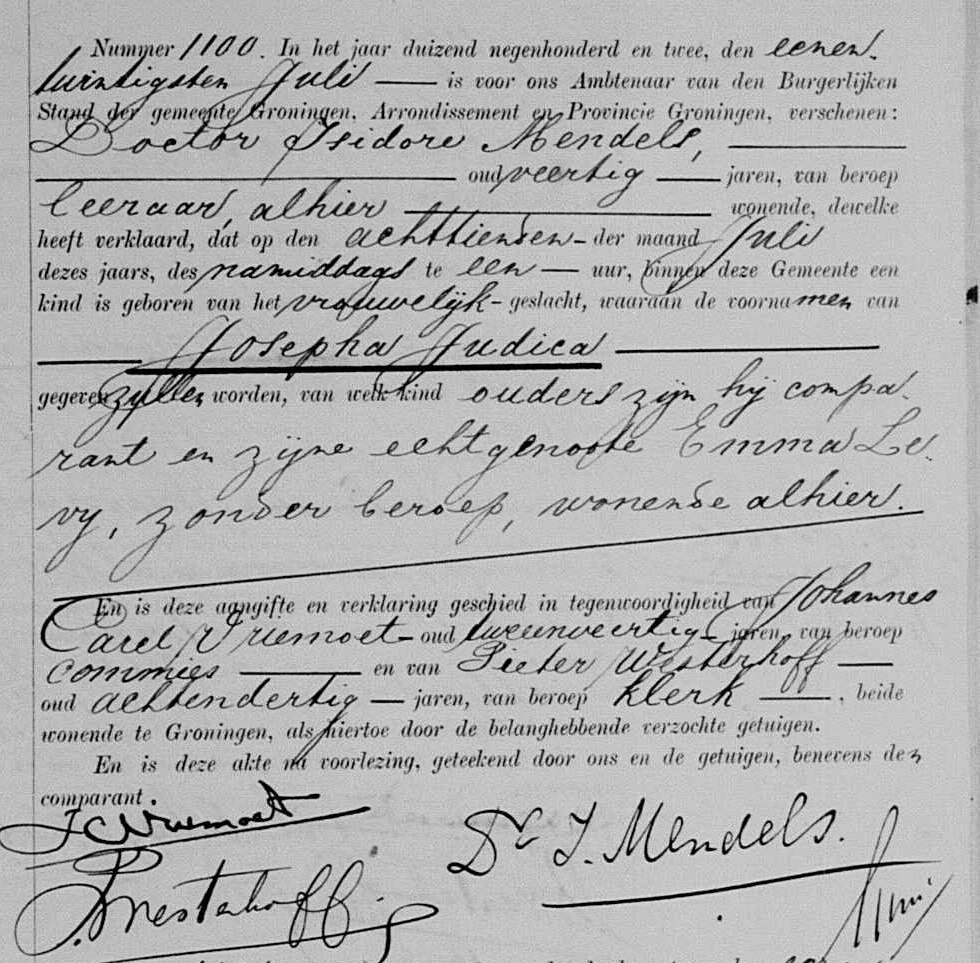 Nummer 1100. In het jaar duizend negenhonderd en twee, den eenen
twintigsten Juli — is voor ons Ambtenaar van den Burgerlijken
Stand der gemeente Groningen, Arrondissement en Provincie Groningen, verschenen:
Doctor Isidore Mendels, —
— oud veertig — jaren, van beroep
leeraar, alhier — wonende, dewelke
heeft verklaard, dat op den achttienden - der maand Juli
dezes jaars, des namiddags te een — uur, binnen deze Gemeente een
kind is geboren van het vrouwelijk - geslacht, waaraan de voornamen van
— Josepha Judica —
gegeven zullen worden, van welk kind ouders zijn hij compa-
rant en zijne echtgenoote Emma Le-
vy, zonder beroep, wonende alhier.
En is deze aangifte en verklaring geschied in tegenwoordigheid van Johannes
Carel Vriemoet - oud tweeenveertig - jaren, van beroep
commies — en van Pieter Westerhoff —
oud achtendertig — jaren, van beroep klerk —, beide
wonende te Groningen, als hiertoe door de belanghebbende verzochte getuigen.
En is deze akte na voorlezing, geteekend door ons en de getuigen, benevens den
comparant.
JCVriemoet
Dr I. Mendels.
P. Westerhoff.